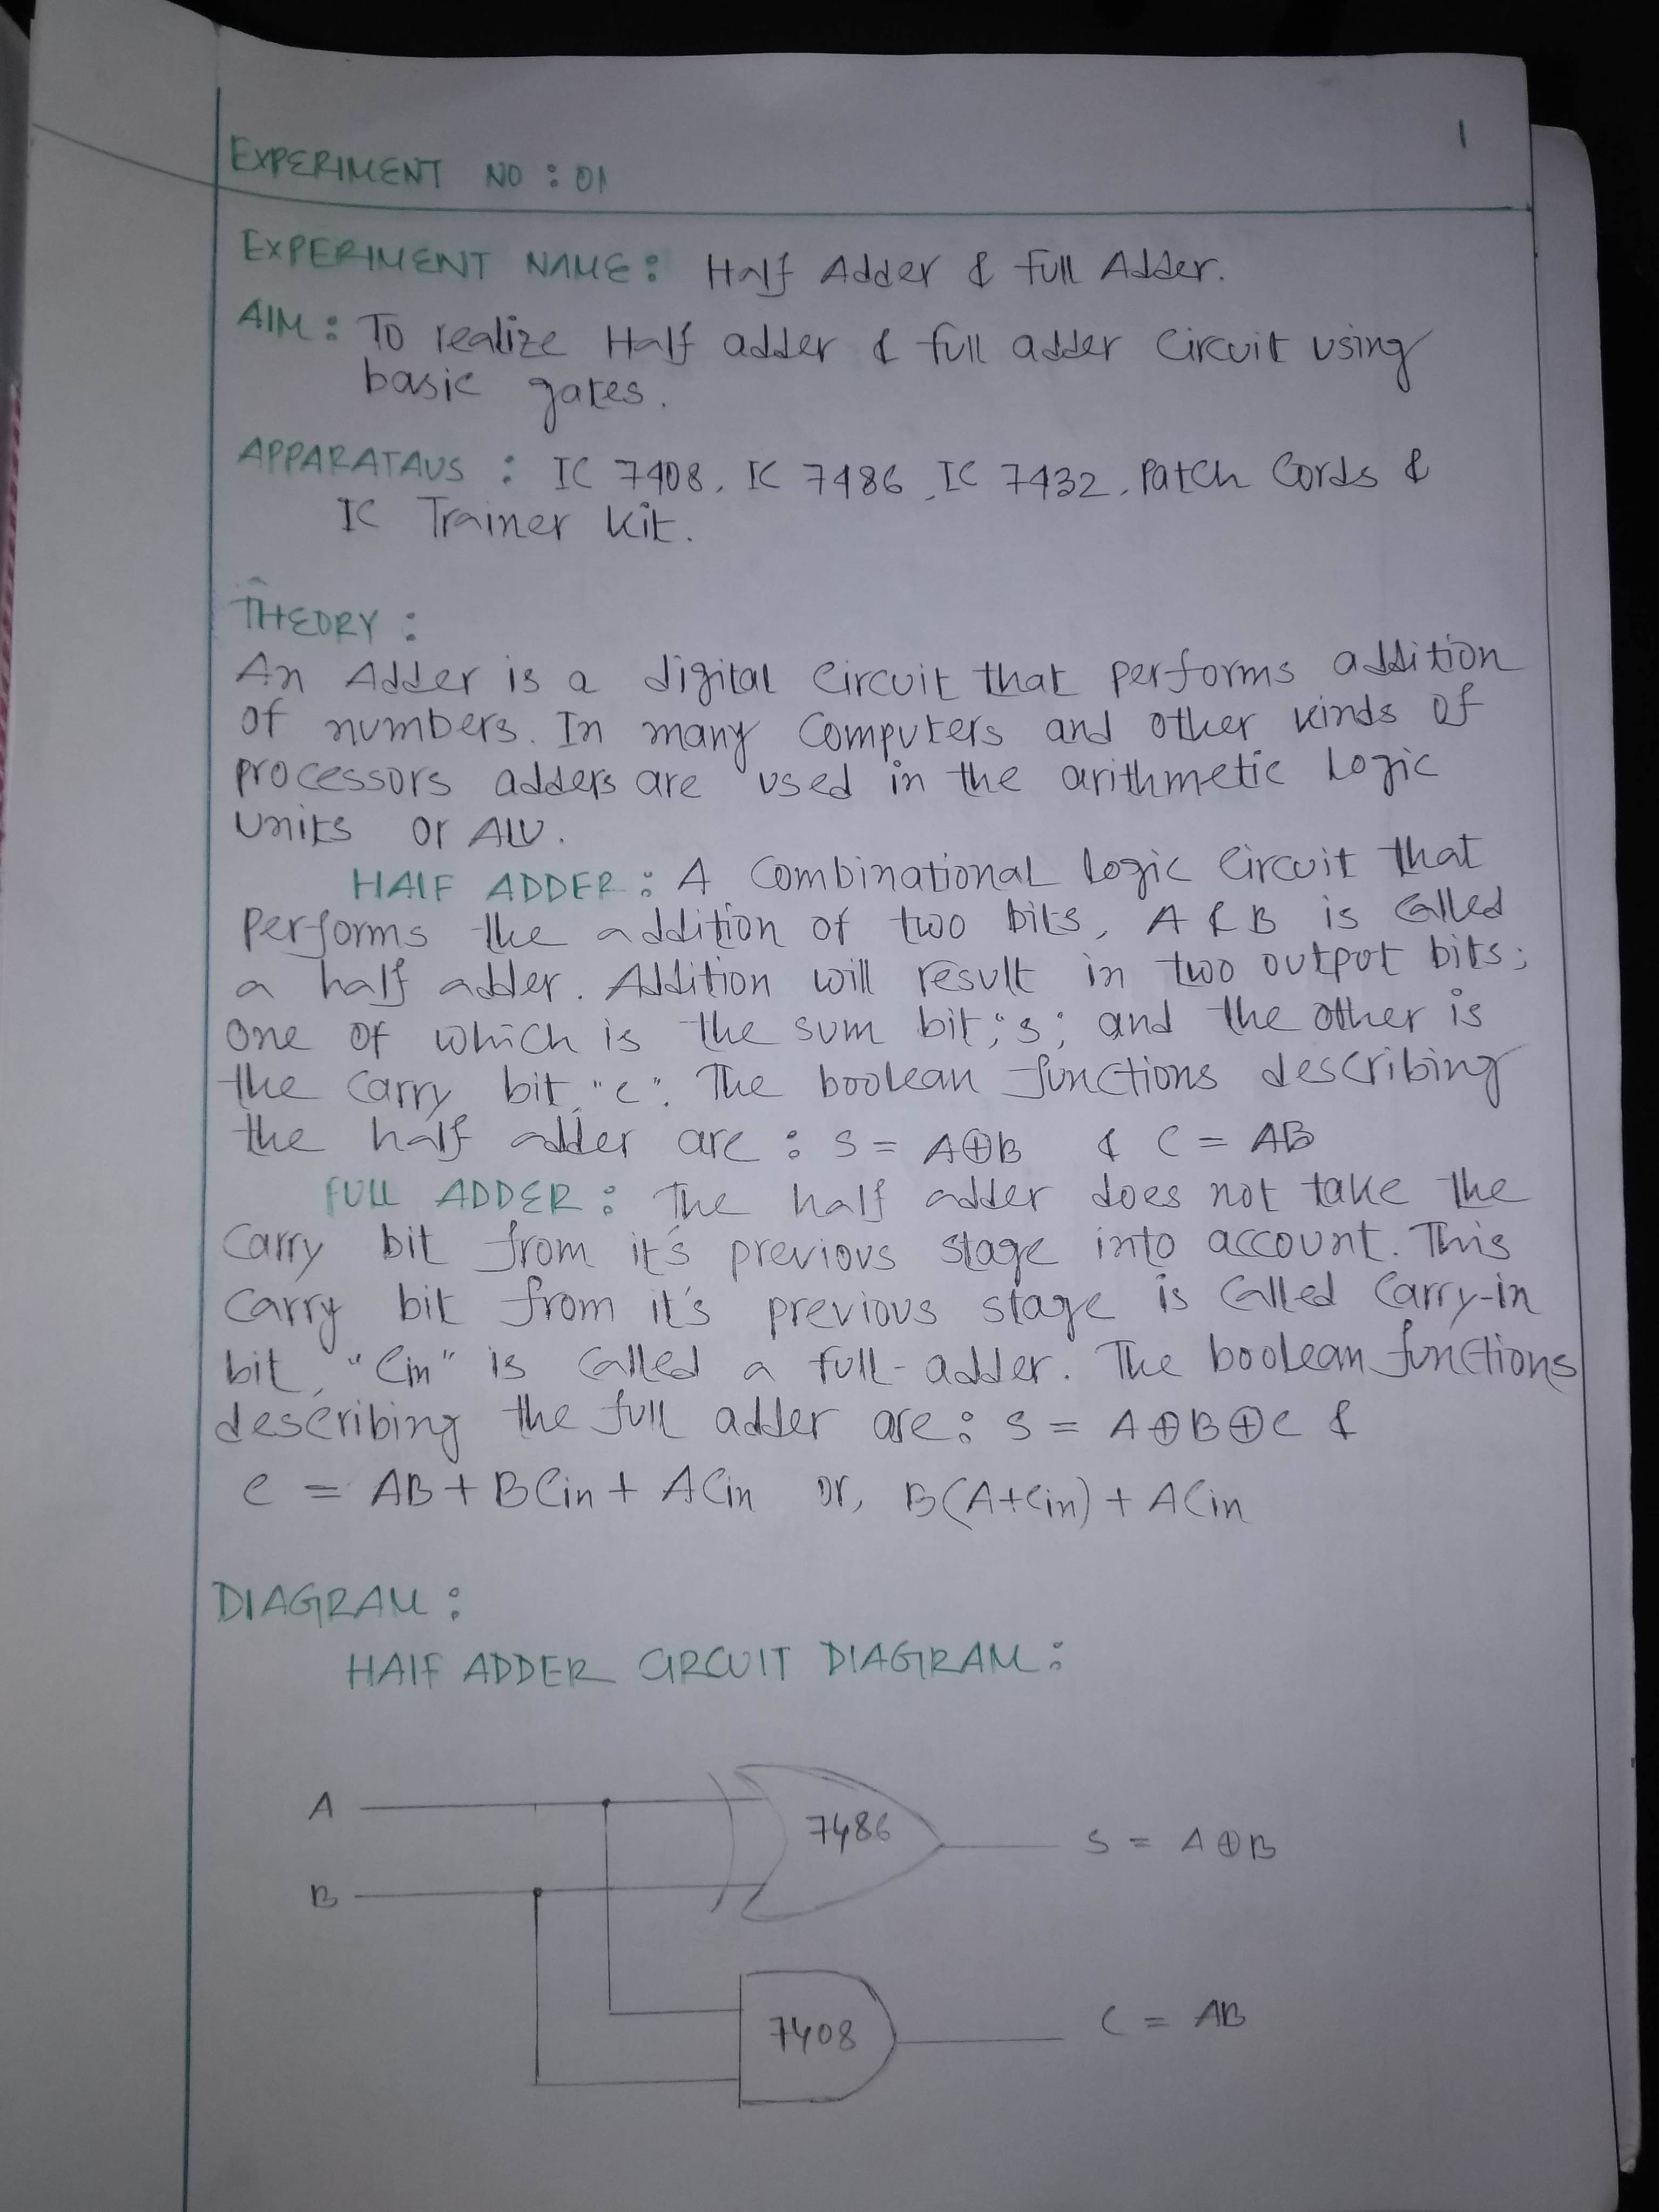 1
EXPERIMENT NO : 01
EXPERIMENT NAME : Half Adder & full Adder.
AIM : To realize Half adder & full adder circuit using
basic gates.
APPARATAUS : IC 7408, IC 7486, IC 7432, Patch Cords &
IC Trainer Kit.
THEORY :
An Adder is a digital circuit that performs addition
of numbers. In many computers and other kinds of
processors adders are used in the arithmetic logic
units or ALU.
HALF ADDER : A combinational logic circuit that
performs the addition of two bits, A & B is called
a half adder. Addition will result in two output bits;
one of which is the sum bit, "s", and the other is
the carry bit, "c". The boolean functions describing
the half adder are : S = A⊕B & C = AB
FULL ADDER : The half adder does not take the
carry bit from it's previous stage into account. This
carry bit from it's previous stage is called carry-in
bit, "Cin" is called a full-adder. The boolean functions
describing the full adder are : S = A⊕B⊕C &
C = AB + BCin + ACin or, B(A+Cin) + ACin
DIAGRAM :
HALF ADDER CIRCUIT DIAGRAM :
A
7486
S = A⊕B
B
7408
C = AB